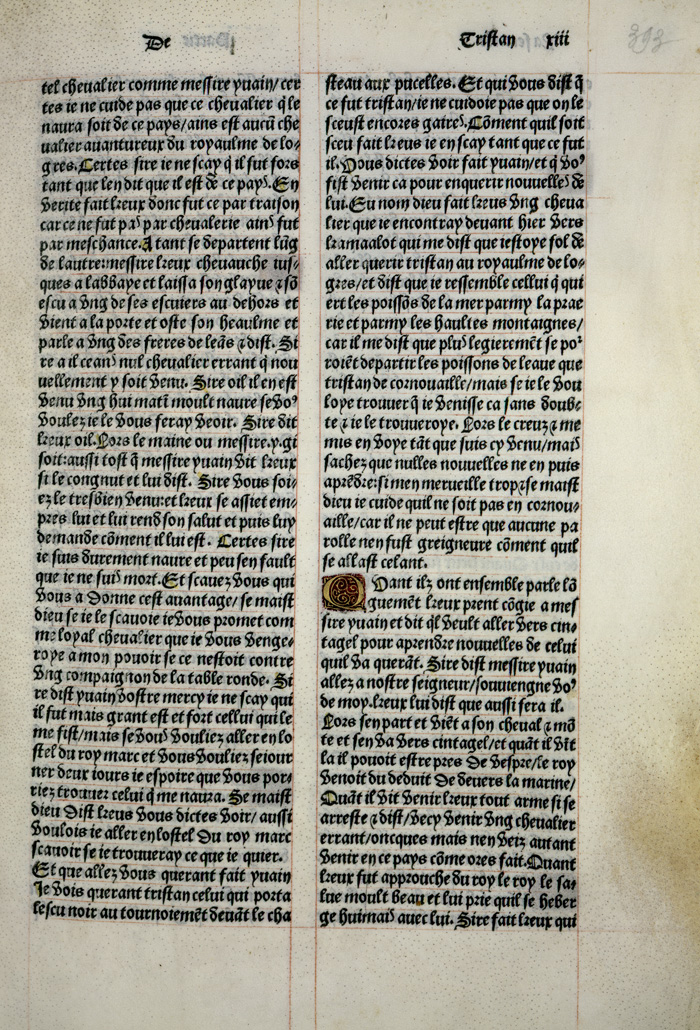 De
Tristan xiii
393
tel cheualier comme messire yuain/ cer
tes ie ne cuide pas que ce cheualier q̃ le
naura soit de ce pays/ains est aucũ che
ualier auantureux du royaulme de lo⸗
gres. Certes sire ie ne scay q̃ il fut fors
tant que len dit que il est de ce pays. En
verite fait kreux donc fut ce par traison
car ce ne fut pas par cheualerie ains fut
par meschance. A tant se departent lũg
de lautre:messire kreux cheuauche ius⸗
ques a labbaye et laissa son glayue ⁊ sõ
escu a vng de ses escuiers au dehors et
vient a la porte et oste son heaulme et
parle a vng des freres de leãs ⁊ dist. Si
re a il ceans nul cheualier errant q̃ nou
uellement y soit venu. Sire oil il en est
venu vng hui matĩ moult naure se voꝰ
voulez ie le vous feray veoir. Sire dit
kreux oil. Lors le maine ou messire.y.gi
soit:aussi tost q̃ messire yuain vit kreux
si le congnut et lui dist. Sire vous soi⸗
ez le tresbien venu:et kreux se assiet em⸗
pres lui et lui rend son salut et puis luy
demande cõment il lui est. Certes sire
ie suis durement naure et peu sen fault
que ie ne suis mort. Et scauez vous qui
vous a donne cest auantage/ se maist
dieu se ie le scauoie ie vous promet com
me loyal cheualier que ie vous venge⸗
roye a mon pouoir se ce nestoit contre
vng compaignon de la table ronde. Si
re dist yuain vostre mercy ie ne scay qui
il fut mais grant est et fort cellui qui le
me fist/ mais se vous vouliez aller en lo
stel du roy marc et vous vouliez seiour
ner deux iours ie espoire que vous por⸗
riez trouuer celui q̃ me naura. Se maist
dieu dist kreus vous dictes voir/ aussi
voulois ie aller en lostel du roy marc
scauoir se ie trouueray ce que ie quier.
Et que allez vous querant fait yuain
Je vois querant tristan celui qui porta
lescu noir au tournoiemẽt deuãt le cha
steau aux pucelles. Et qui vous dist q̃
ce fut tristan/ie ne cuidoie pas que on le
sceust encores gaires. Cõment quil soit
sceu fait kreus ie en scay tant que ce fut
il. Vous dictes voir fait yuain/et q̃ voꝰ
fist venir ca pour enquerir nouuelles de
lui. Eu nom dieu fait kreus vng cheua
lier que ie encontray deuant hier vers
kramaalot qui me dist que iestoye fol de
aller querir tristan au royaulme de lo⸗
gres/et dist que ie ressemble cellui q̃ qui
ert les poissõs de la mer parmy la prae
rie et parmy les haultes montaignes/
car il me dist que plus legieremẽt se poꝛ
roiẽt departir les poissons de leaue que
tristan de cornouaille/mais se ie le vou
loye trouuer q̃ ie venisse ca sans doub⸗
te ⁊ ie le trouueroye. Lors le creuz ⁊ me
mis en voye tãt que suis cy venu/mais
sachez que nulles nouuelles ne en puis
aprẽdre:si men merueille trop:se maist
dieu ie cuide quil ne soit pas en cornou⸗
aille/car il ne peut estre que aucune pa
rolle nen fust greigneure cõment quil
se allast celant.
Quant ilz ont ensemble parle lõ
guemẽt kreux prent cõgie a mes
sire yuain et dit ql̃ veult aller vers cin⸗
tagel pour aprendre nouuelles de celui
quil va querãt. Sire dist messire yuain
allez a nostre seigneur/souuiengne voꝰ
de moy.kreux lui dist que aussi fera il.
Lors sen part et viẽt a son cheual ⁊ mõ
te et sen va vers cintagel/et quãt il vĩt
la il pouoit estre pres de vespre/le roy
venoit du deduit de deuers la marine/
Quãt il vit venir kreux tout arme si se
arreste ⁊ dist/vecy venir vng cheualier
errant/oncques mais nen veiz autant
venir en ce pays cõme ores fait.Quant
kreux fut approuche du roy le roy le sa⸗
lue moult beau et lui prie quil se heber
ge huimais auec lui. Sire fait kreux qui